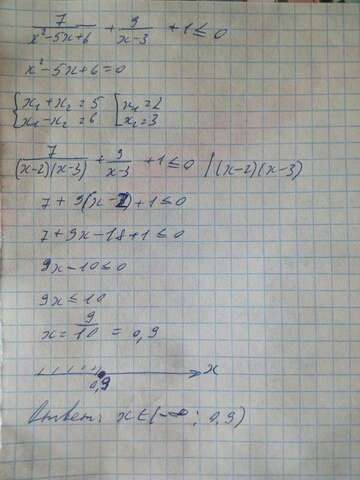 7/(x²-5x+6) + 9/(x-3) + 1 ≤ 0
x²-5x+6=0
{x₁+x₂=5 [x₁=2
{x₁-x₂=6 [x₂=3
7/((x-2)(x-3)) + 9/(x-3) + 1 ≤ 0 /(x-2)(x-3)
7+9(x-2)+1≤0
7+9x-18+1≤0
9x-10≤0
9x≤10
x=9/10=0,9
0,9 x
Ответ: x∈(-∞; 0,9)